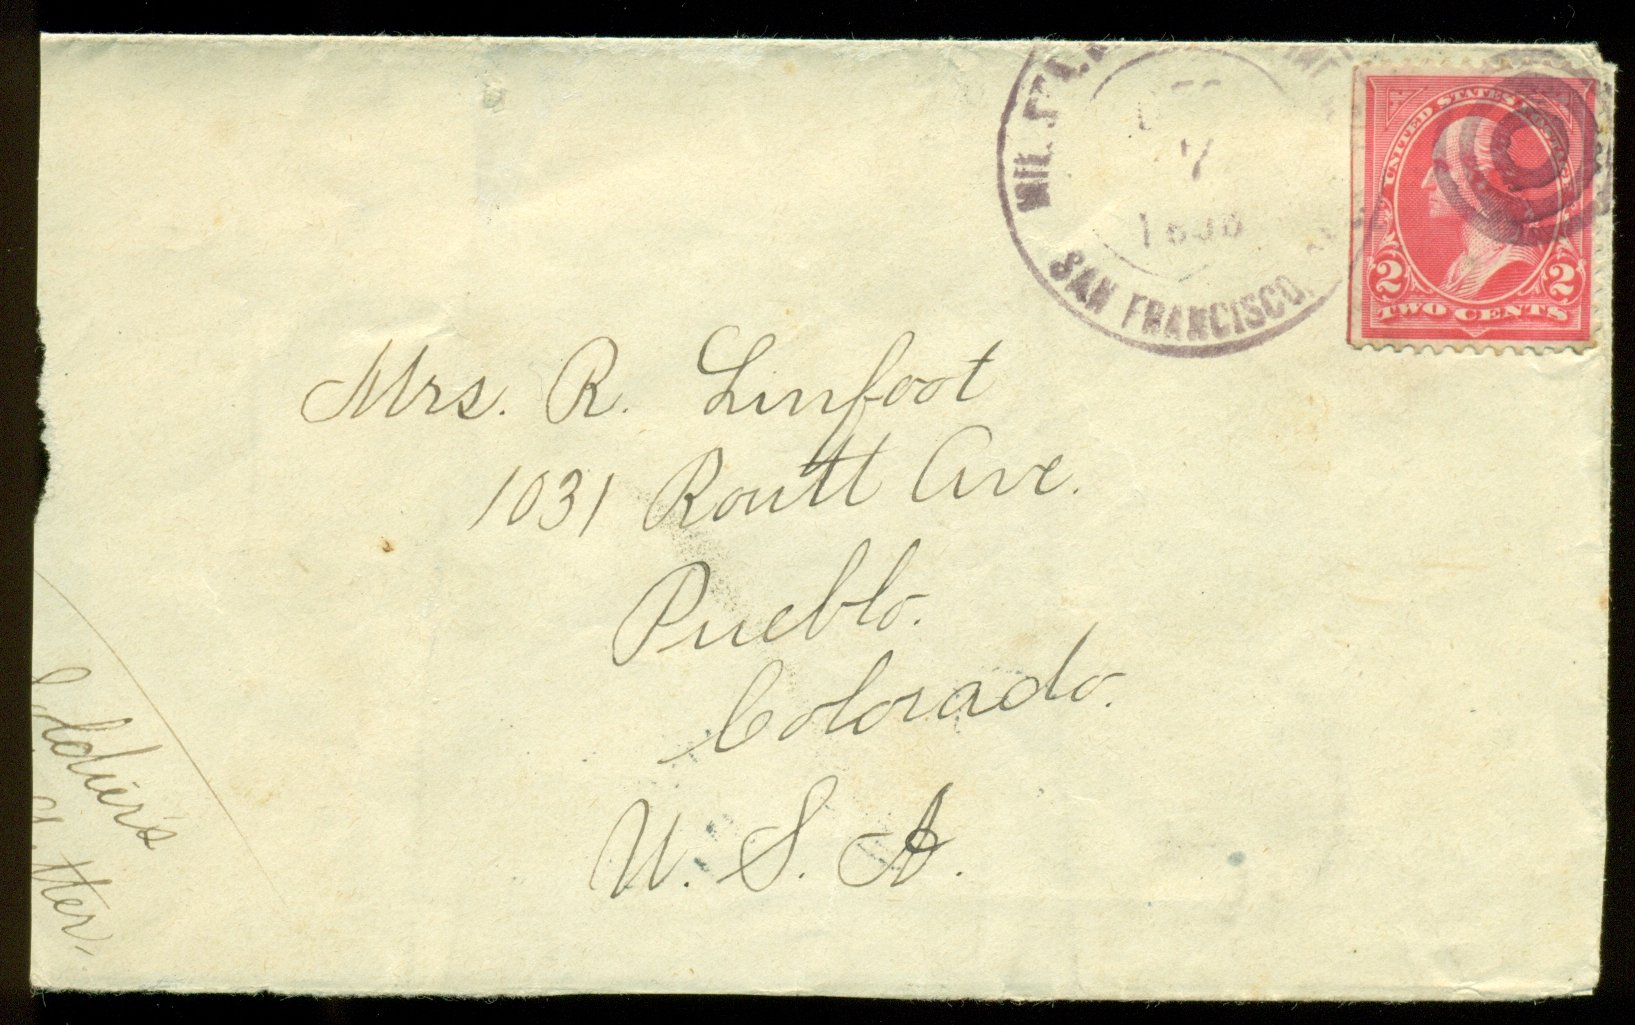 MIL. STA.
SAN FRANCISCO,
UNITED STATES
2 2
TWO CENTS
Mrs. R. Linfoot
1031 Routt Ave.
Pueblo.
Colorado.
U. S. A.
oldier's
tter